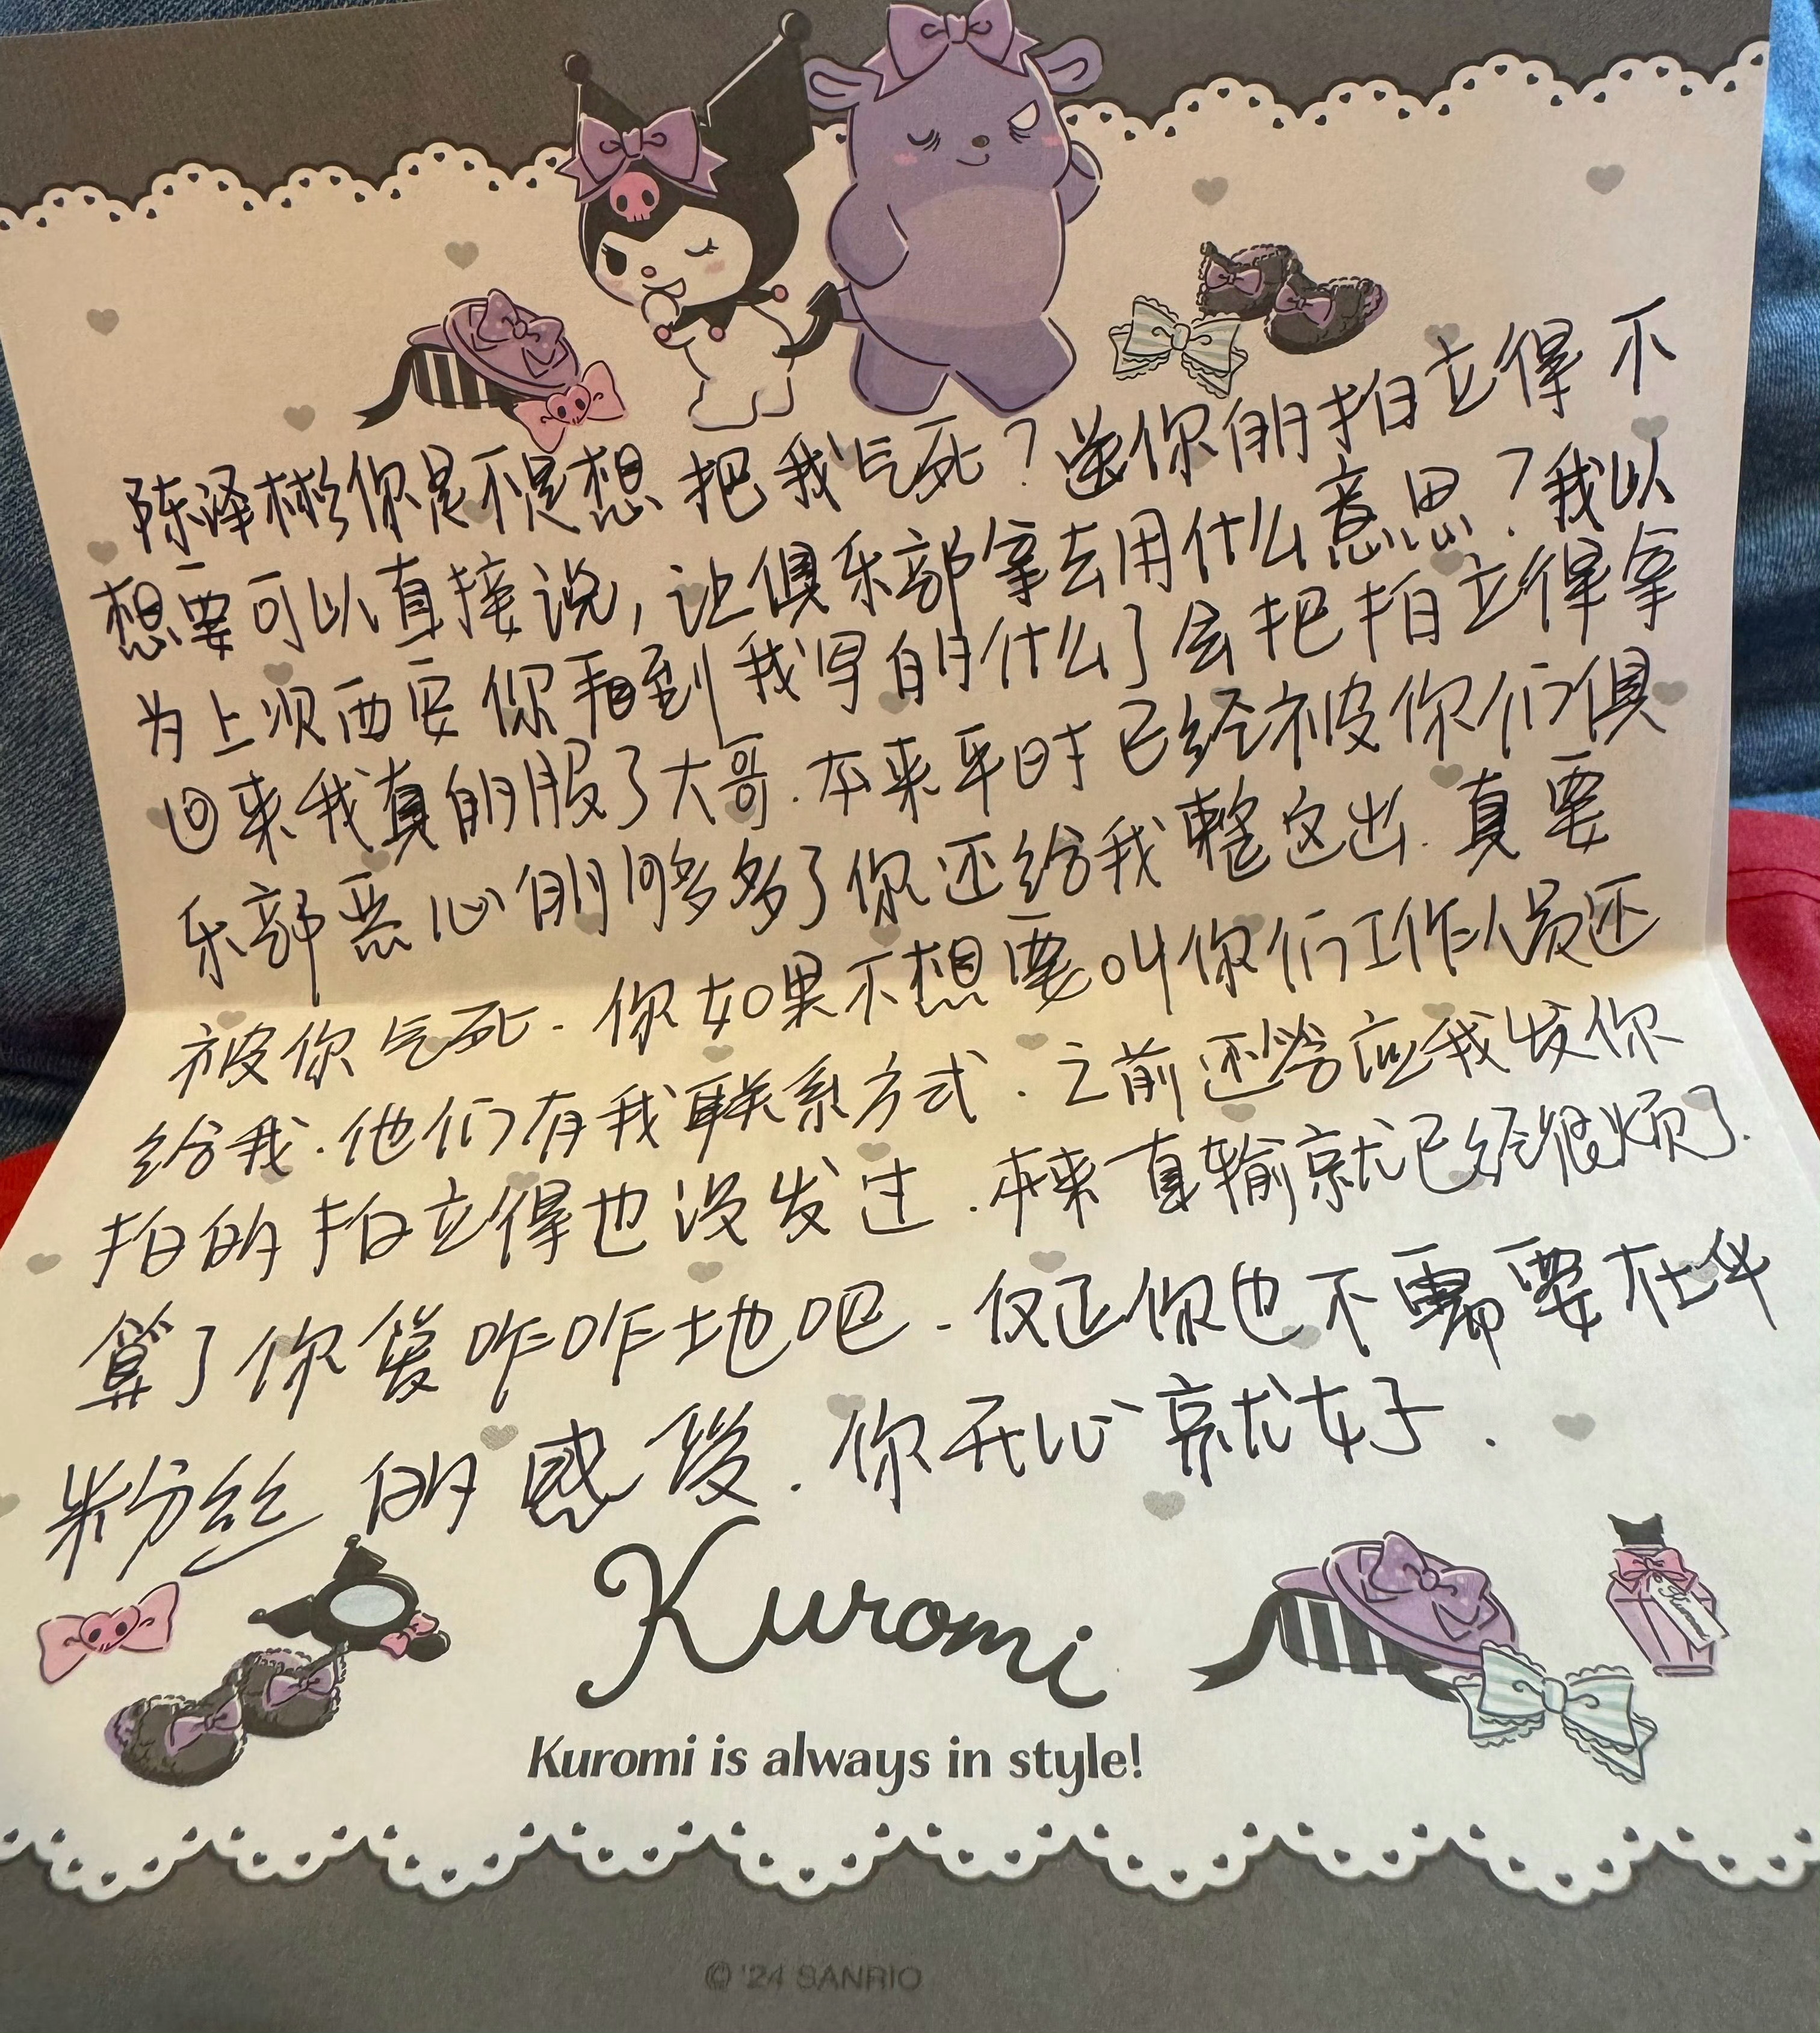 陈泽彬你是不是想把我气死？送你的拍立得不
想要可以直接说，让俱乐部拿去用什么意思？我以
为上次西安你看到我写的什么了会把拍立得拿
回来我真的服了大哥.本来平时已经被你们俱
乐部恶心的够多了你还给我整这出.真要
被你气死.你如果不想要叫你们工作人员还
给我.他们有我联系方式.之前还答应我发你
拍的拍立得也没发过.本来一直输就已经很烦了.
算了你爱咋咋地吧.反正你也不需要在乎
粉丝的感受.你开心就好.
Kuromi
Kuromi is always in style!
© '24 SANRIO